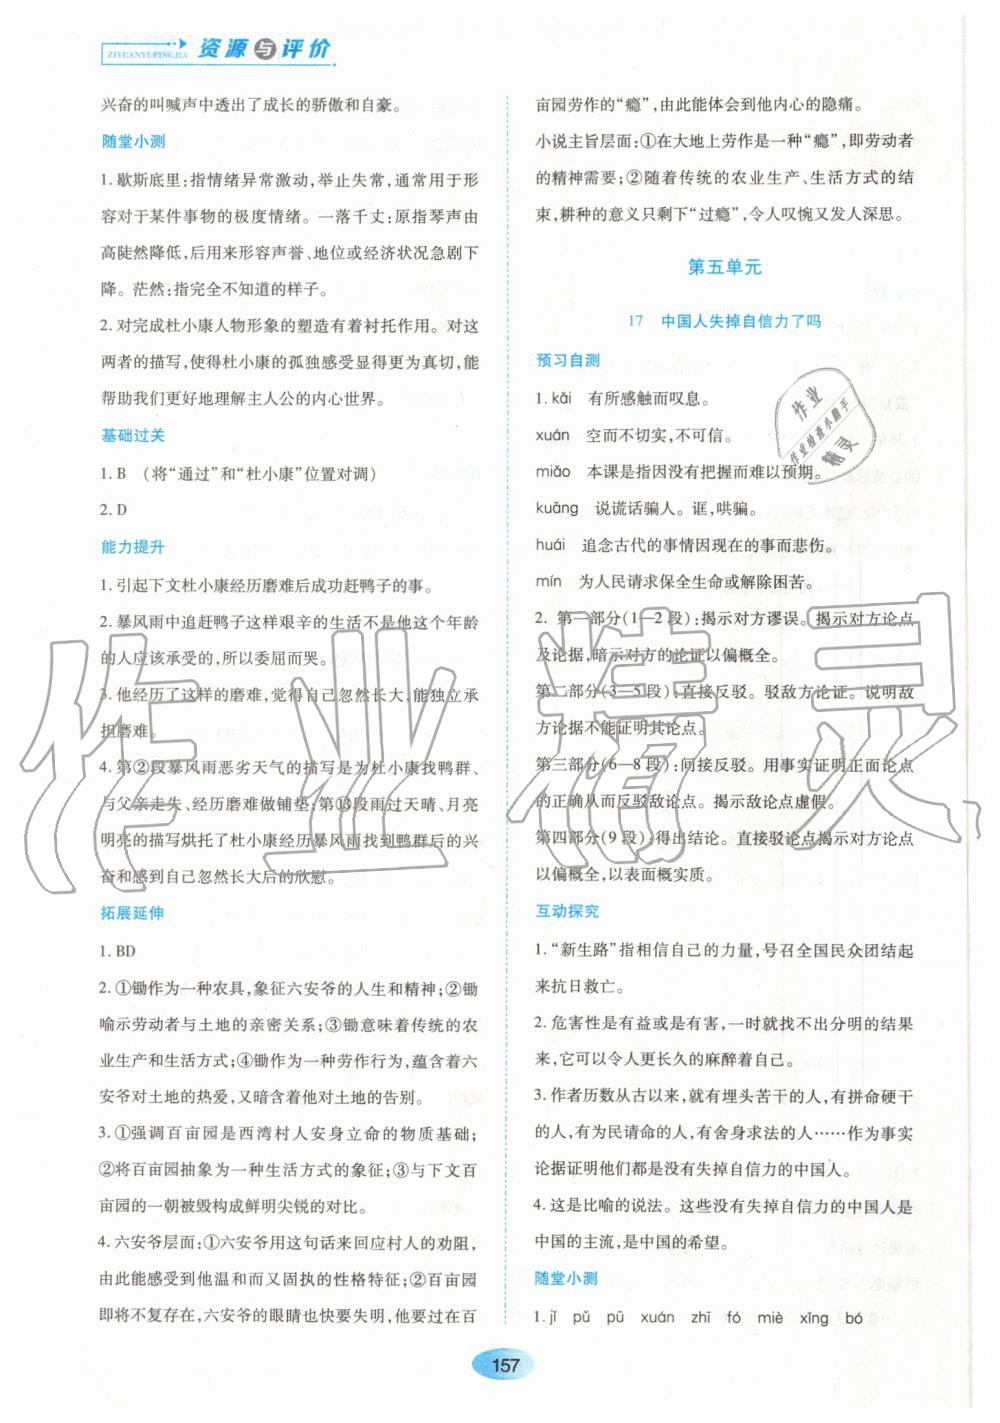 资源与评价
ZIYUANYUPINGJIA
兴奋的叫喊声中透出了成长的骄傲和自豪。
随堂小测
1. 歇斯底里:指情绪异常激动,举止失常,通常用于形
容对于某件事物的极度情绪。一落千丈:原指琴声由
高陡然降低,后用来形容声誉、地位或经济状况急剧下
降。茫然:指完全不知道的样子。
2. 对完成杜小康人物形象的塑造有着衬托作用。对这
两者的描写,使得杜小康的孤独感受显得更为真切,能
帮助我们更好地理解主人公的内心世界。
基础过关
1. B (将“通过”和“杜小康”位置对调)
2. D
能力提升
1. 引起下文杜小康经历磨难后成功赶鸭子的事。
2. 暴风雨中追赶鸭子这样艰辛的生活不是他这个年龄
的人应该承受的,所以委屈而哭。
3. 他经历了这样的磨难,觉得自己忽然长大,能独立承
担磨难。
4. 第②段暴风雨恶劣天气的描写是为杜小康找鸭群、
与父亲走失、经历磨难做铺垫;第⑬段雨过天晴、月亮
明亮的描写烘托了杜小康经历暴风雨找到鸭群后的兴
奋和感到自己忽然长大后的欣慰。
拓展延伸
1. BD
2. ①锄作为一种农具,象征六安爷的人生和精神;②锄
喻示劳动者与土地的亲密关系;③锄意味着传统的农
业生产和生活方式;④锄作为一种劳作行为,蕴含着六
安爷对土地的热爱,又暗含着他对土地的告别。
3. ①强调百亩园是西湾村人安身立命的物质基础;
②将百亩园抽象为一种生活方式的象征;③与下文百
亩园的一朝被毁构成鲜明尖锐的对比。
4. 六安爷层面:①六安爷用这句话来回应村人的劝阻,
由此能感受到他温和而又固执的性格特征;②百亩园
即将不复存在,六安爷的眼睛也快要失明,他要过在百
亩园劳作的“瘾”,由此能体会到他内心的隐痛。
小说主旨层面:①在大地上劳作是一种“瘾”,即劳动者
的精神需要;②随着传统的农业生产、生活方式的结
束,耕种的意义只剩下“过瘾”,令人叹惋又发人深思。
第五单元
17 中国人失掉自信力了吗
预习自测
1. kǎi 有所感触而叹息。
xuán 空而不切实,不可信。
miǎo 本课是指因没有把握而难以预期。
kuāng 说谎话骗人。诓,哄骗。
huái 追念古代的事情因现在的事而悲伤。
mín 为人民请求保全生命或解除困苦。
2. 第一部分(1—2 段):揭示对方谬误。揭示对方论点
及论据,暗示对方的论证以偏概全。
第二部分(3—5 段):直接反驳。驳敌方论证。说明敌
方论据不能证明其论点。
第三部分(6—8 段):间接反驳。用事实证明正面论点
的正确从而反驳敌论点。揭示敌论点虚假。
第四部分(9 段):得出结论。直接驳论点揭示对方论点
以偏概全,以表面概实质。
互动探究
1. “新生路”指相信自己的力量,号召全国民众团结起
来抗日救亡。
2. 危害性是有益或是有害,一时就找不出分明的结果
来,它可以令人更长久的麻醉着自己。
3. 作者历数从古以来,就有埋头苦干的人,有拼命硬干
的人,有为民请命的人,有舍身求法的人……作为事实
论据证明他们都是没有失掉自信力的中国人。
4. 这是比喻的说法。这些没有失掉自信力的中国人是
中国的主流,是中国的希望。
随堂小测
1. jǐ pǔ pū xuán zhī fó miè xǐng bó
157
作业
作业检查小助手
精灵
作业精灵